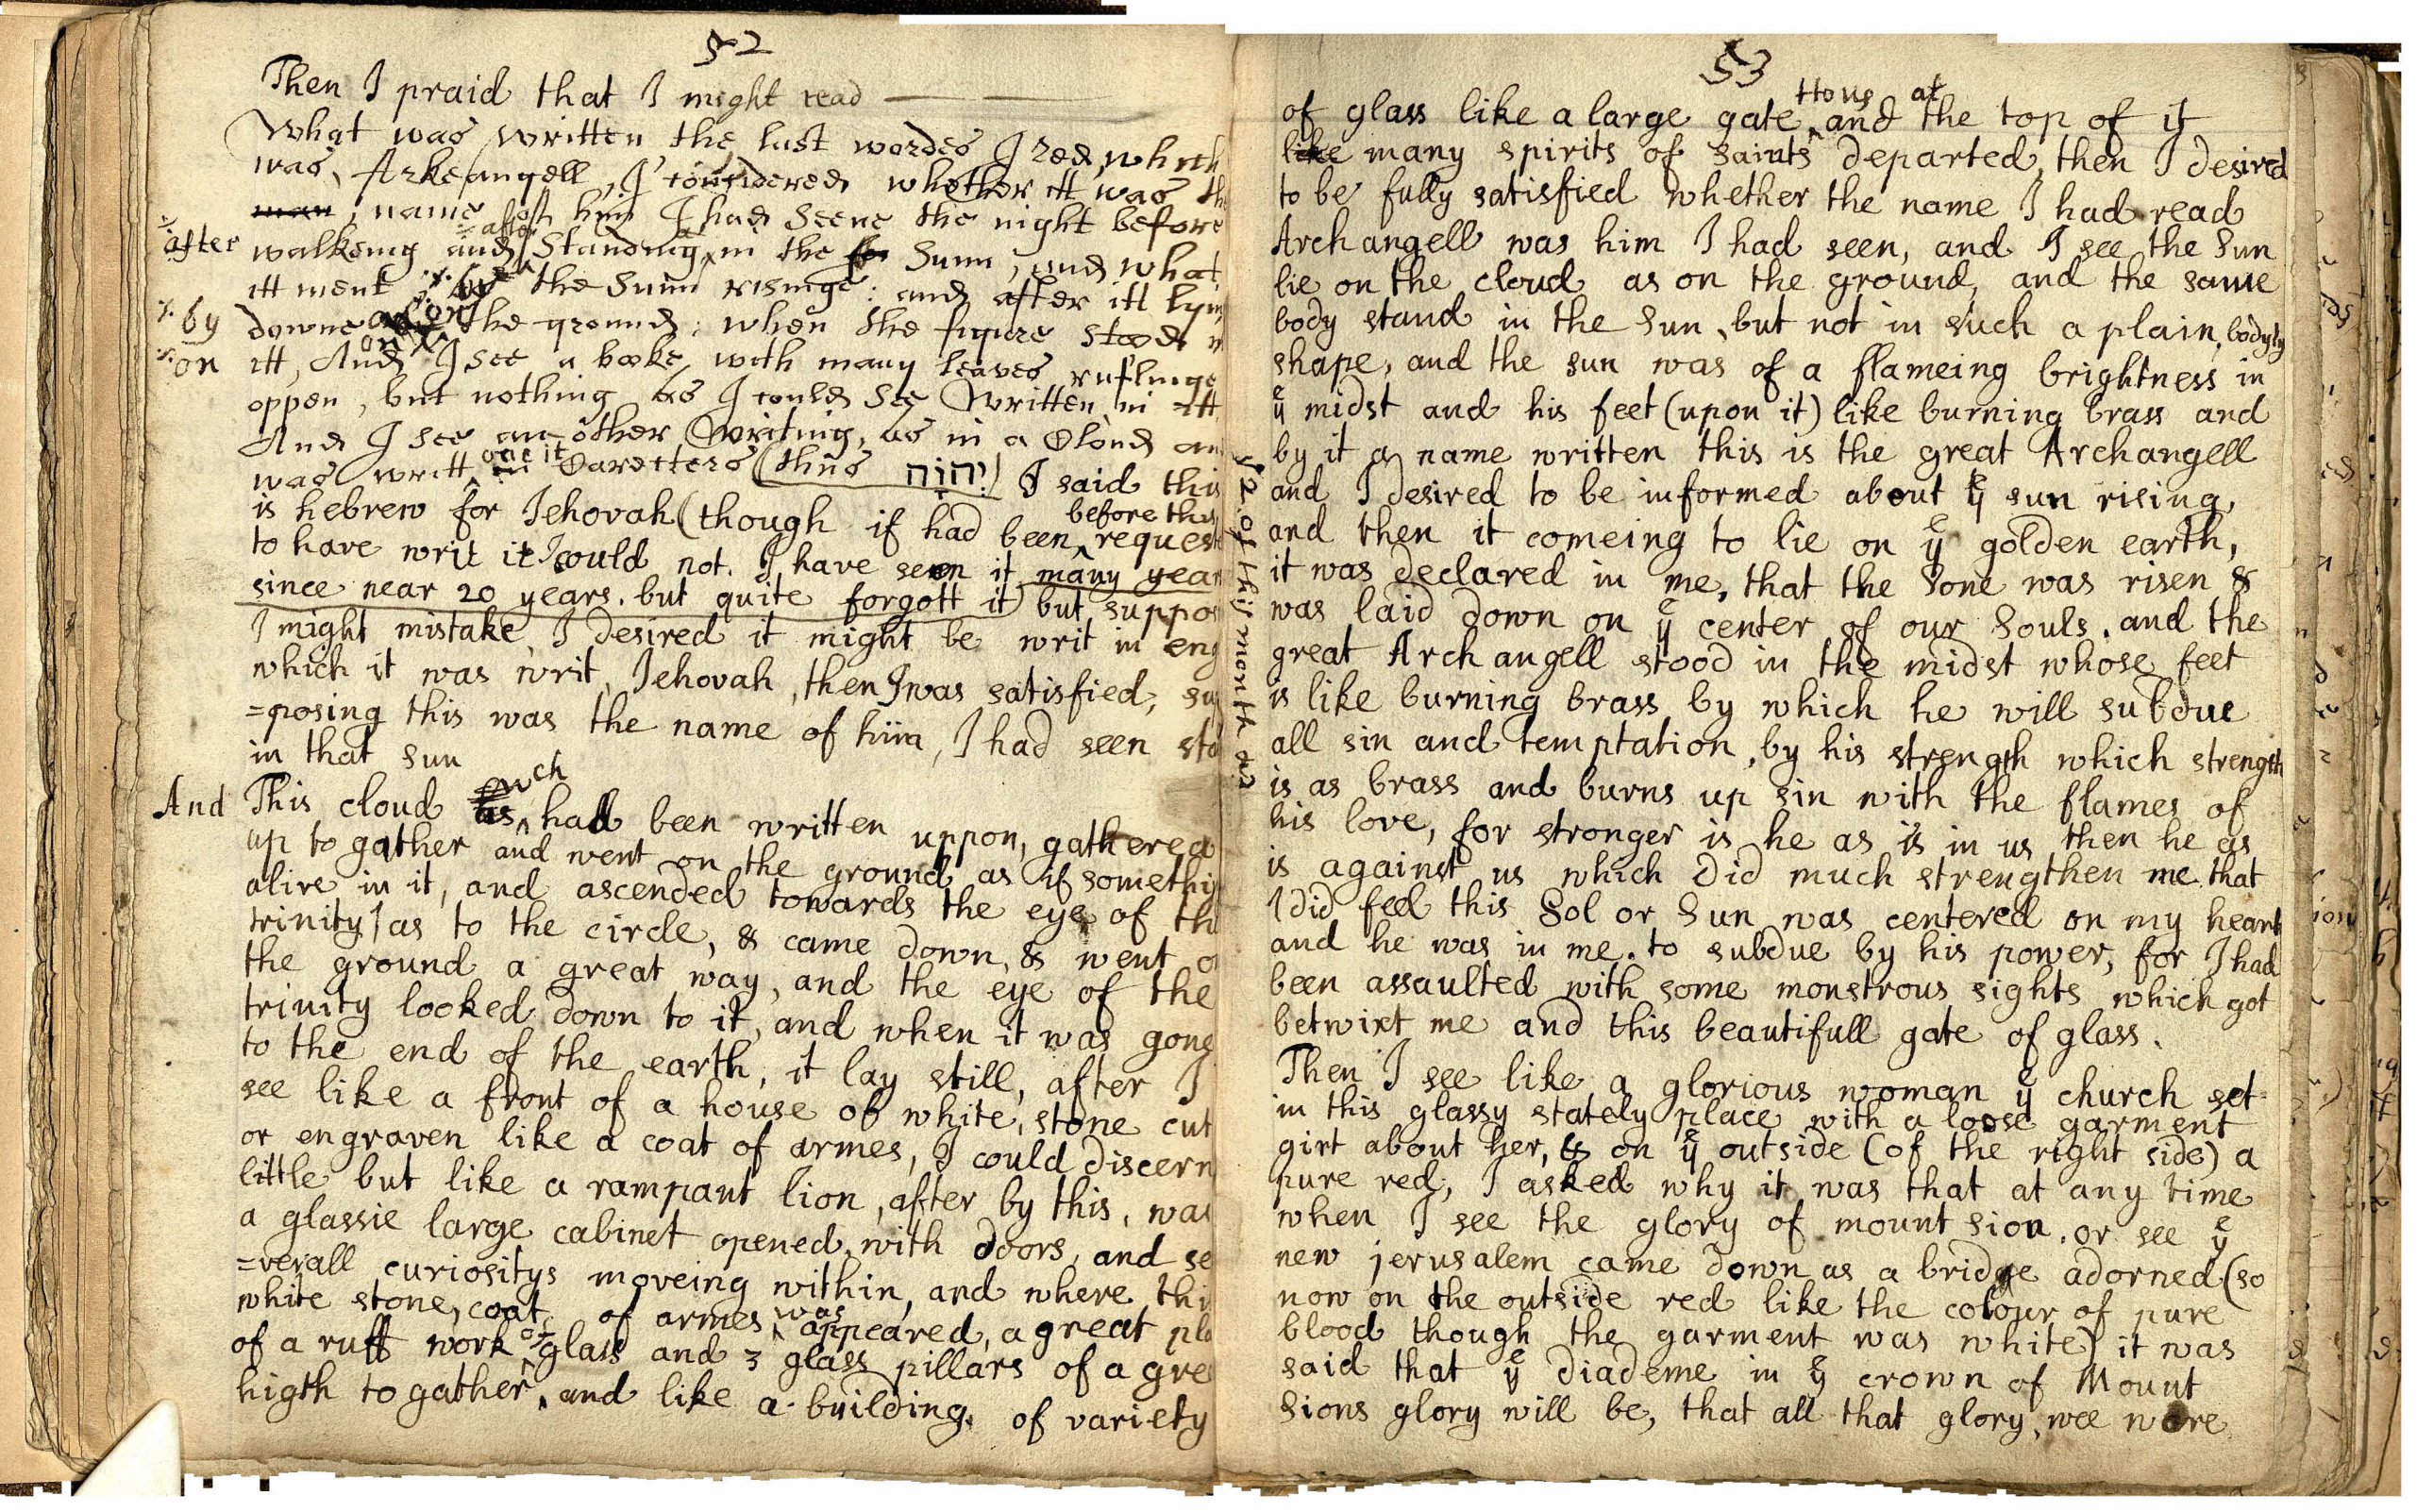 52
Then I praid that I might read
What was written the last wordes I red, which
was, Arkeangell, I considered whether itt was th
man, name of him I had seene the night before
after walkeing and after standing in the Sunn, and what
itt ment by the Sunn riseinge: and after itt lyin
by downe on the ground; when the figure stood in
on itt, And I see a booke with many leaves ruflinge
oppen, but nothing as I could see written in itt
And I see an other writing, as in a Cloud an
was writt one it in Caracters (thus יהוה) I said this
is hebrew for Jehovah (though if had been before this request
to have writ it I could not. I have seen it many year
since near 20 years. but quite forgott it) but suppos
I might mistake, I desired it might be writ in eng
which it was writ, Jehovah, then I was satisfied, su
=posing this was the name of him, I had seen sta
in that sun
And This cloud as wch had been written uppon, gathered
up to gather and went on the ground as if somethig
alive in it, and ascended towards the eye of the
trinity / as to the circle, & came down, & went o
the ground a great way, and the eye of the
trinity looked down to it, and when it was gone
to the end of the earth, it lay still, after I
see like a front of a house of white, stone cut
or engraven like a coat of armes, I could discern
little but like a rampant lion, after by this, was
a glassie large cabinet opened, with doors, and se
=verall curiositys moveing within, and where this
white stone, coat, of armes was appeared, a great pla
of a ruff work of glass and 3 glass pillars of a gre
higth to gather, and like a building, of variety
53
of glass like a large gate Hous and at the top of it
like many spirits of saints departed, then I desired
to be fully satisfied whether the name I had read
Archangell was him I had seen, and I see the sun
lie on the cloud as on the ground, and the same
body stand in the sun, but not in such a plain, bodyly
shape, and the sun was of a flameing brightness in
ye midst and his feet (upon it) like burning brass and
by it a name written this is the great Archangell
and I desired to be informed about ye sun rising,
and then it comeing to lie on ye golden earth,
it was declared in me, that the sone was risen &
was laid down on ye center of our souls, and the
great Archangell stood in the midst whose feet
is like burning brass by which he will subdue
all sin and temptation, by his strength which strength
is as brass and burns up sin with the flames of
his love, for stronger is he as is in us then he as
is against us which did much strengthen me that
I did feel this Sol or Sun was centered on my heart
and he was in me. to subdue by his power, for I had
been assaulted with some monstrous sights which got
betwixt me and this beautifull gate of glass.
Then I see like a glorious woman ye church set
in this glassy stately place with a loose garment
girt about her, & on ye outside (of the right side) a
pure red, I asked why it was that at any time
when I see the glory of mount sion. or see ye
new jerusalem came down as a bridge adorned (so
now on the outside red like the colour of pure
blood though the garment was white) it was
said that ye diademe in ye crown of Mount
Sions glory will be, that all that glory, wee wore
2 of this month